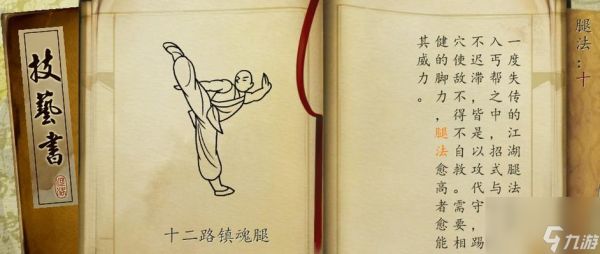 腿法：十
一度失传的江湖腿法
入丐帮之中，招式与
不迟滞，皆是以攻代守，踢
穴使敌不得不自救。需要相
健的脚力，腿法愈高者愈能
其威力。
十二路镇魂腿
技藝書
九游